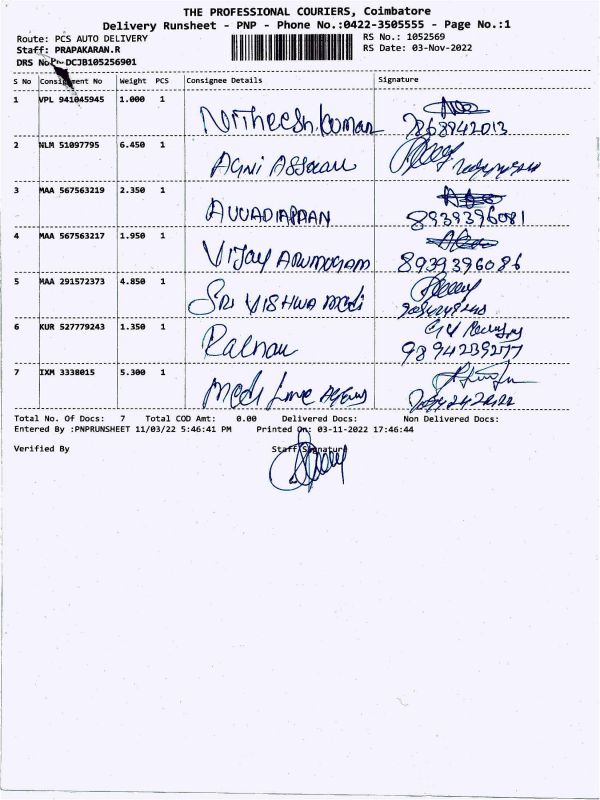 THE PROFESSIONAL COURIERS, Coimbatore
Delivery Runsheet - PNP - Phone No.:0422-3505555 - Page No.:1
Route: PCS AUTO DELIVERY RS No.: 1052569
Staff: PRAPAKARAN.R RS Date: 03-Nov-2022
DRS No DCJB105256901
S No Consignment No Weight PCS Consignee Details Signature
1 VPL 941045945 1.000 1
Nitheesh.kumar 7868942013
2 NLM 51097795 6.450 1
Agni
3 MAA 567563219 2.350 1
8939396081
4 MAA 567563217 1.950 1
Vijay ARUMUGAM 8939396086
5 MAA 291572373 4.850 1
Sri VISHWA
6 KUR 527779243 1.350 1
9894239277
7 IXM 3338015 5.300 1
Total No. Of Docs: 7 Total COD Amt: 0.00 Delivered Docs: Non Delivered Docs:
Entered By :PNPRUNSHEET 11/03/22 5:46:41 PM Printed On: 03-11-2022 17:46:44
Verified By Staff Signature